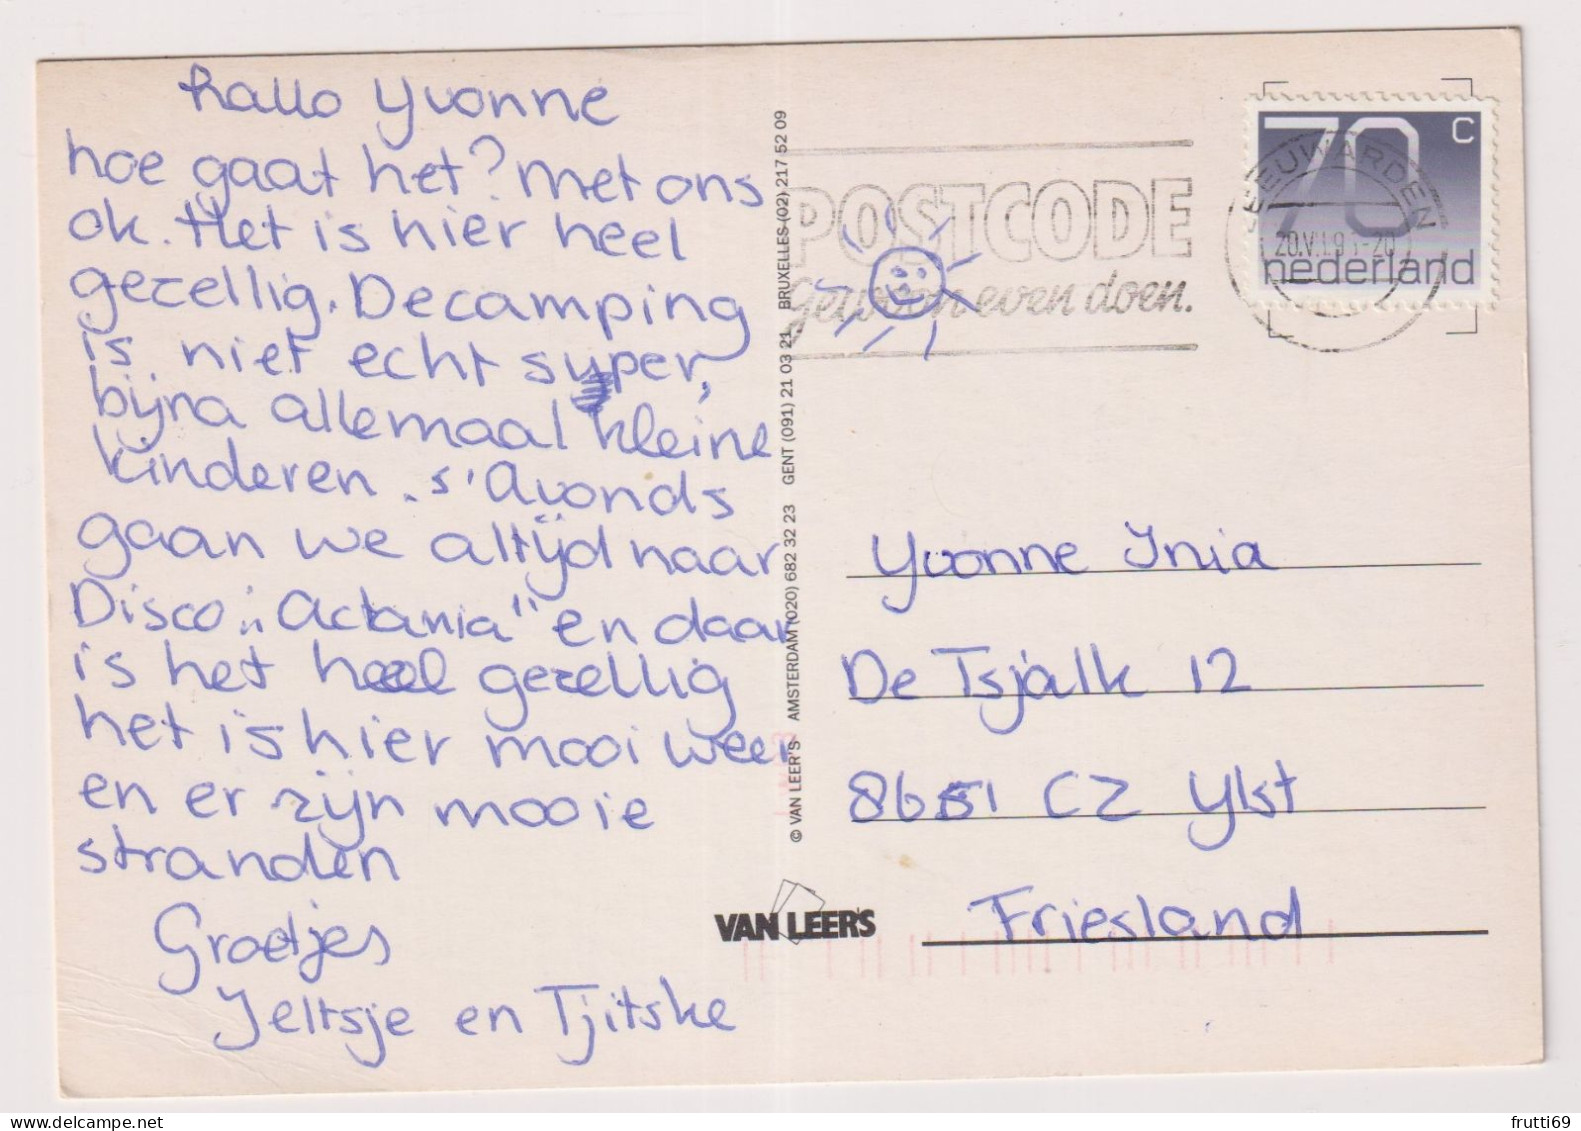 hallo Yvonne
hoe gaat het? met ons
ok. Het is hier heel
gezellig. De camping
is niet echt super,
bijna allemaal kleine
kinderen. s'Avonds
gaan we altijd naar
Disco „Actania" en daar
is het heel gezellig
het is hier mooi weer
en er zijn mooie
stranden
Groetjes
Jeltsje en Tjitske
© VAN LEER'S AMSTERDAM (020) 682 32 23 GENT (091) 21 03 21 BRUXELLES (02) 217 52 09
VAN LEER'S
POSTCODE
gewoon even doen.
LEEUWARDEN
70 c
nederland
Yvonne Inia
De Tsjalk 12
8651 CZ Ylst
Friesland
frutti69